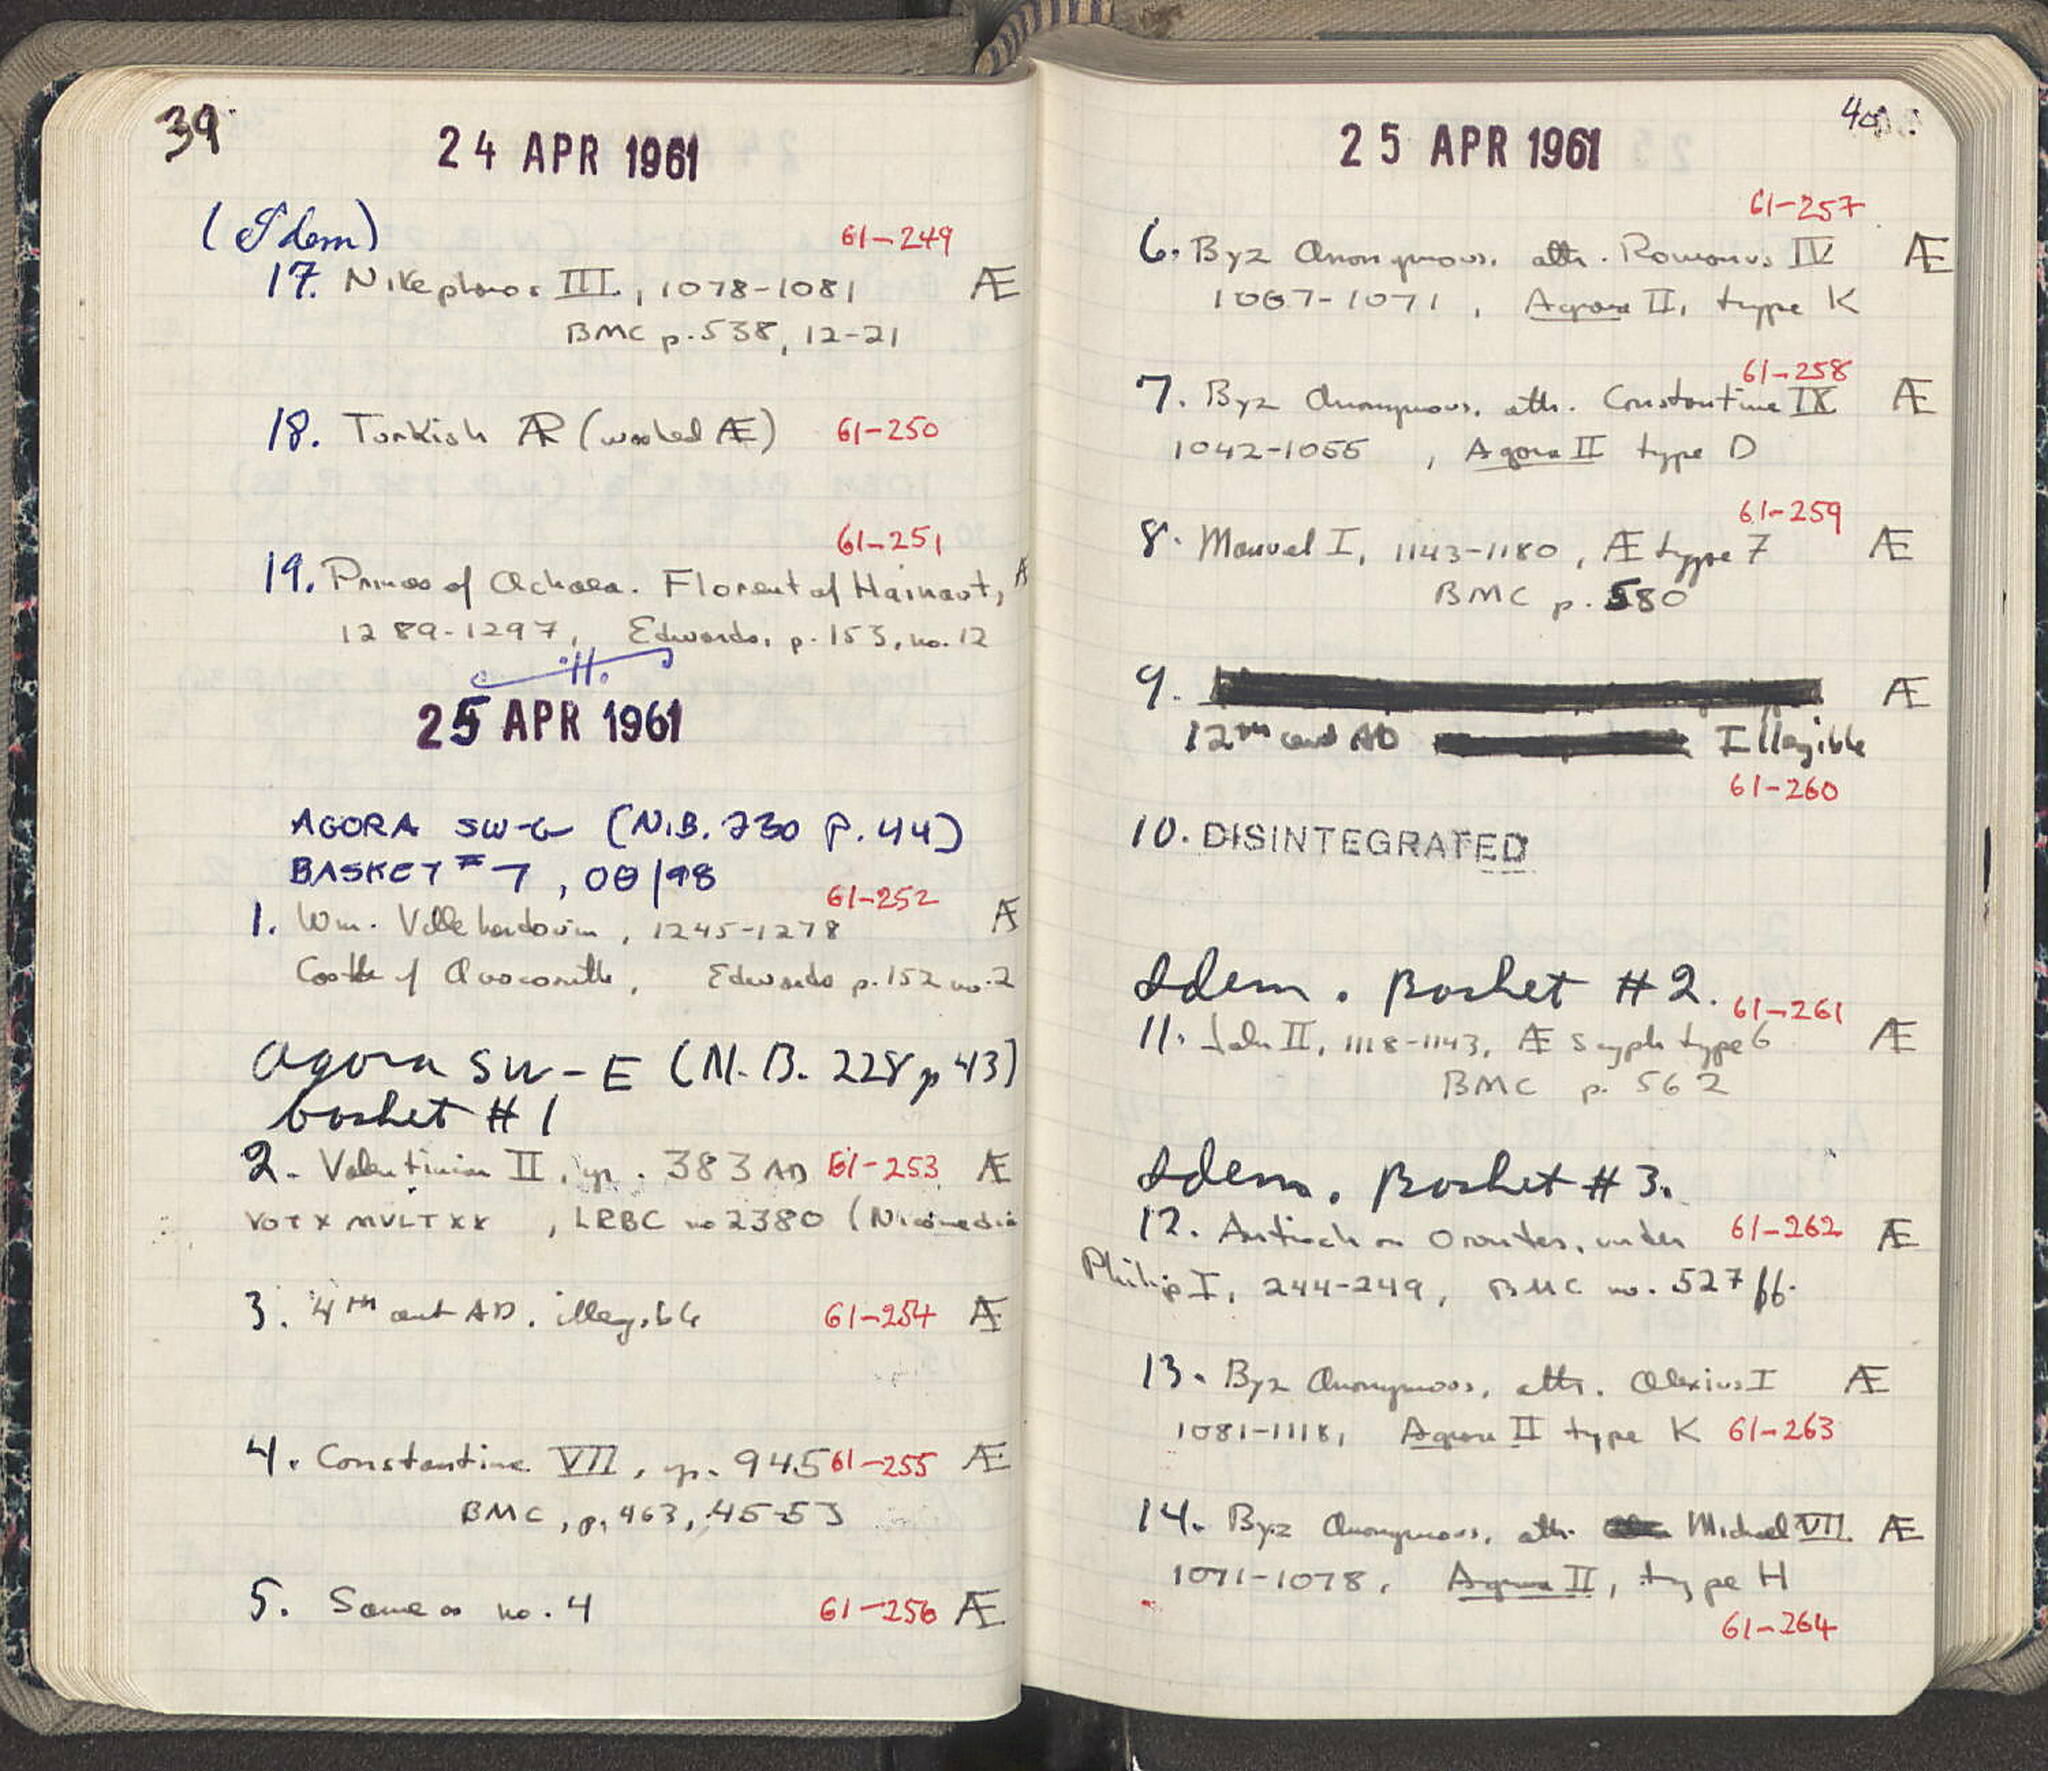 39
24 APR 1961
(Idem)
61-249
17. Nikephoros III, 1078-1081 Æ
BMC p. 538, 12-21
18. Turkish AR (washed Æ) 61-250
61-251
19. Princes of Achaea. Florent of Hainaut, Æ
1289-1297, Edwards, p. 153, no. 12
25 APR 1961
AGORA SW-G (N.B. 230 P. 44)
BASKET #7, ΟΘ/98
61-252
1. Wm. Villehardouin, 1245-1278 Æ
Castle of Acrocorinth, Edwards p. 152 no. 2
Agora SW-E (N.B. 228 p 43)
basket #1
2. Valentinian II, yr. 383 AD 61-253 Æ
VOT X MVLT XX, LRBC no 2380 (Nicomedia
3. 4th cent AD. illegible 61-254 Æ
4. Constantine VII, yr. 945 61-255 Æ
BMC, p. 463, 45-53
5. Same as no. 4 61-256 Æ
40
25 APR 1961
61-257
6. Byz Anonymous. attr. Romanus IV Æ
1067-1071, Agora II, type K
61-258
7. Byz Anonymous. attr. Constantine IX Æ
1042-1055, Agora II type D
61-259
8. Manuel I, 1143-1180, Æ type 7 Æ
BMC p. 580
9. Æ
12th cent AD Illegible
61-260
10. DISINTEGRATED
Idem. Basket #2.
61-261
11. John II, 1118-1143, Æ scyph type 6 Æ
BMC p. 562
Idem. Basket #3.
12. Antioch on Orontes, under 61-262 Æ
Philip I, 244-249, BMC no. 527 ff.
13. Byz Anonymous, attr. Alexius I Æ
1081-1118, Agora II type K 61-263
14. Byz Anonymous, attr. Michael VII Æ
1071-1078, Agora II, type H
61-264